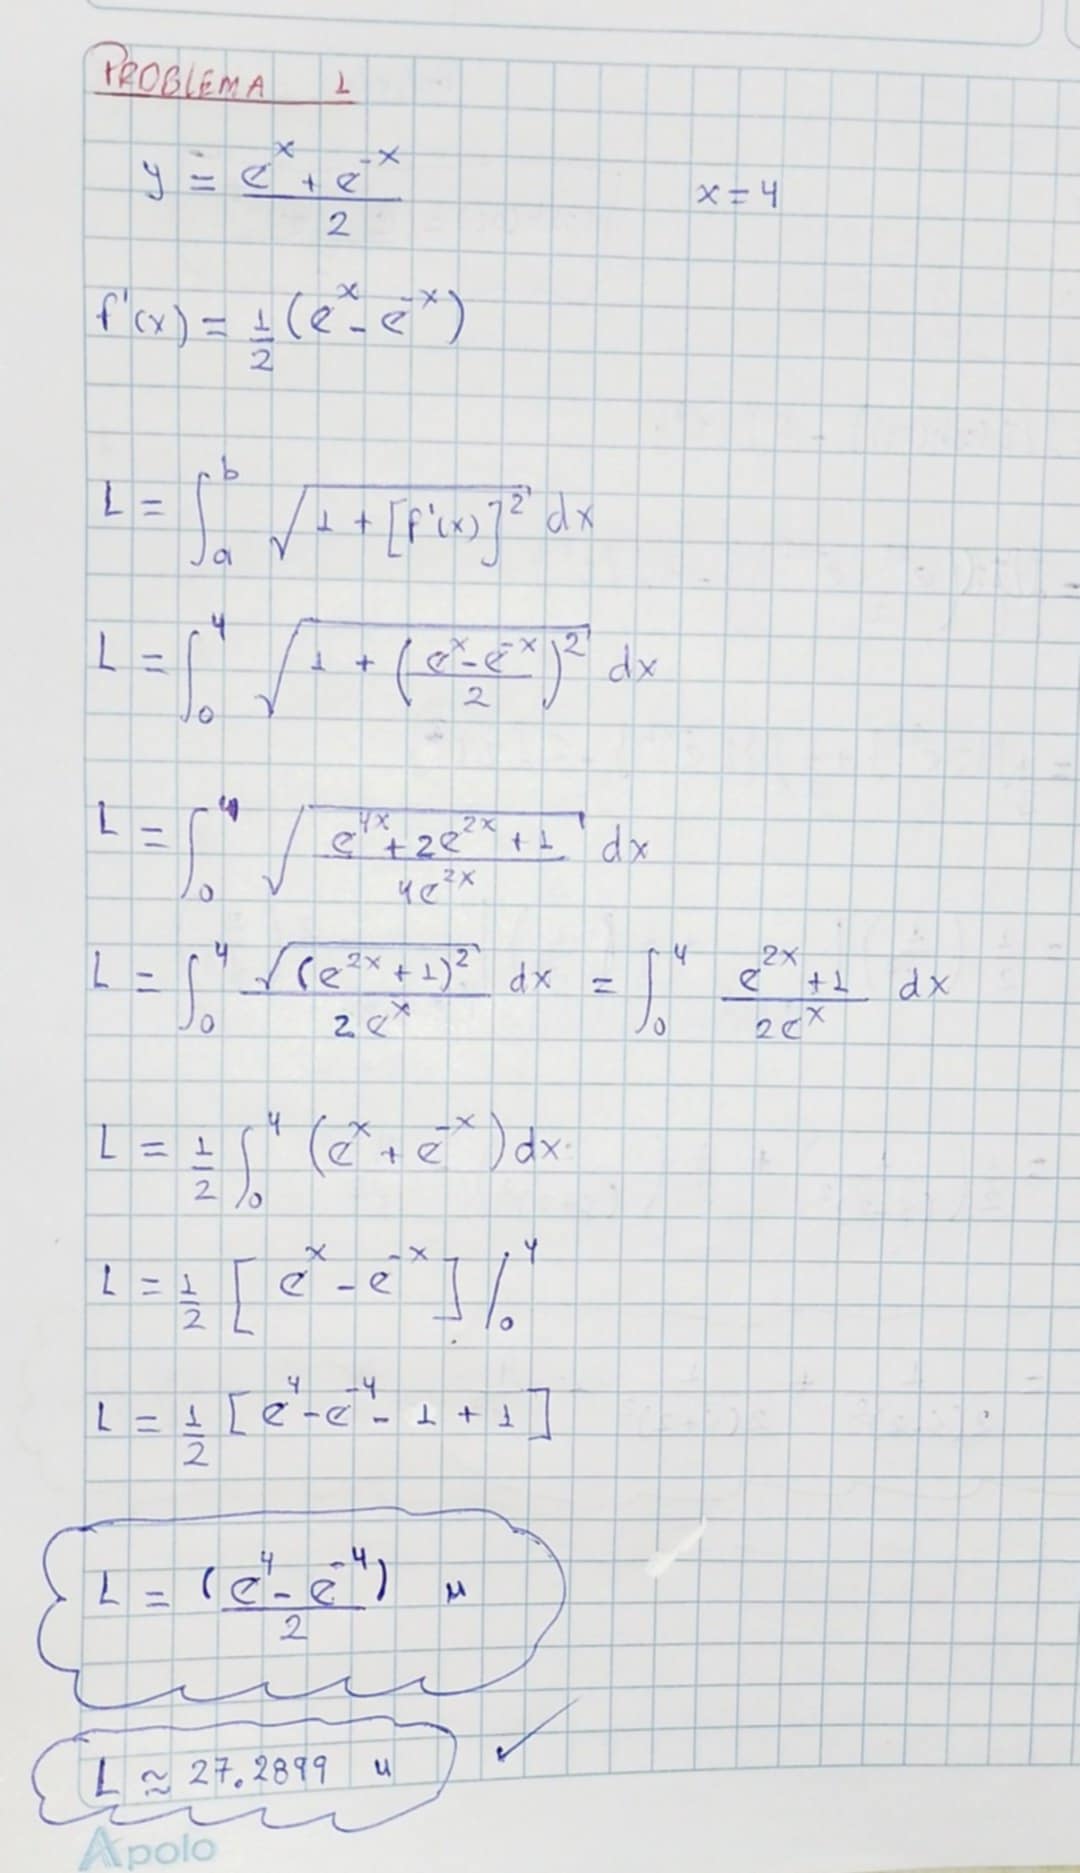 PROBLEMA 1
y = (e^x + e^-x)/2    x = 4
f'(x) = 1/2 (e^x - e^-x)
L = ∫_a^b √(1 + [f'(x)]^2) dx
L = ∫_0^4 √(1 + ((e^x - e^-x)/2)^2) dx
L = ∫_0^4 √((e^4x + 2e^2x + 1)/(4e^2x)) dx
L = ∫_0^4 √((e^2x + 1)^2)/(2e^x) dx = ∫_0^4 (e^2x + 1)/(2e^x) dx
L = 1/2 ∫_0^4 (e^x + e^-x) dx
L = 1/2 [e^x - e^-x] /_0^4
L = 1/2 [e^4 - e^-4 - 1 + 1]
L = (e^4 - e^-4)/2 u
L ≃ 27.2899 u
Apolo